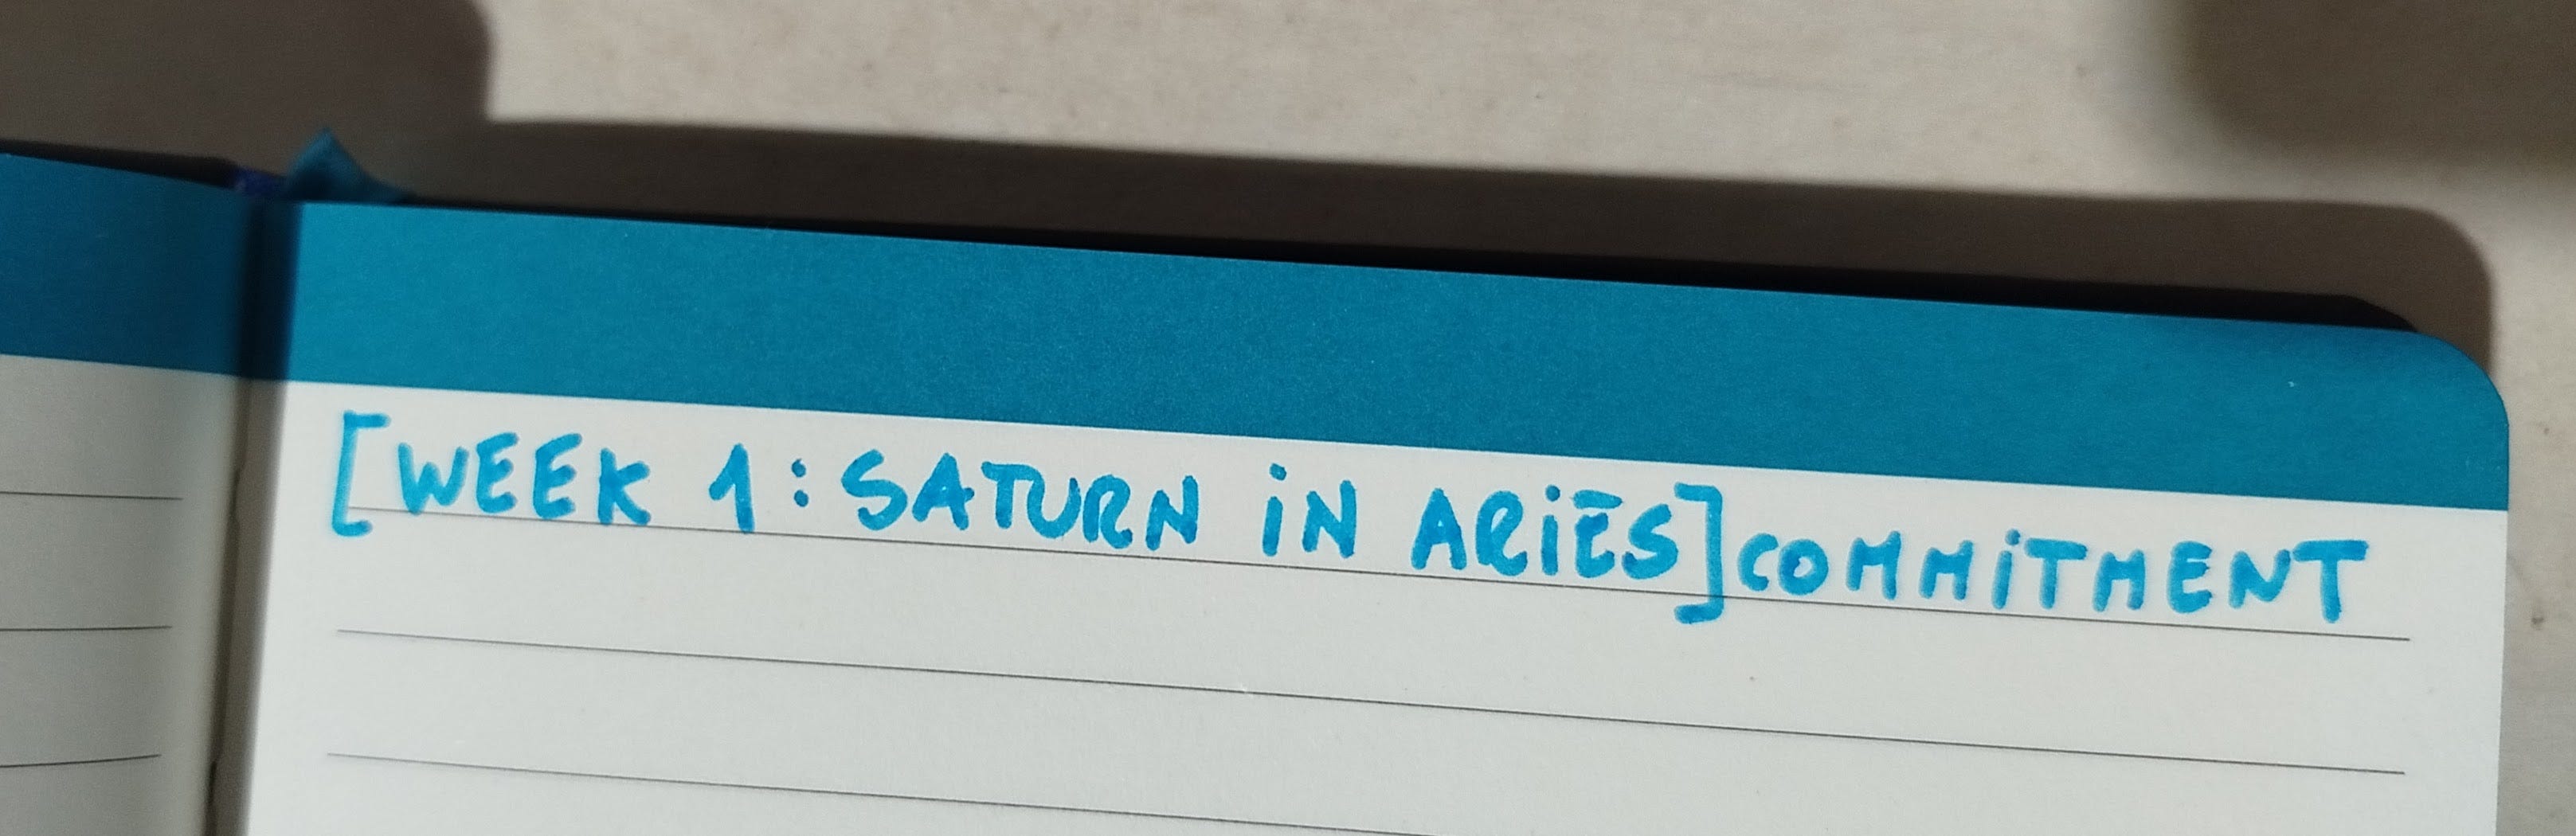 [WEEK 1: SATURN iN ARiES] COMMiTMENT